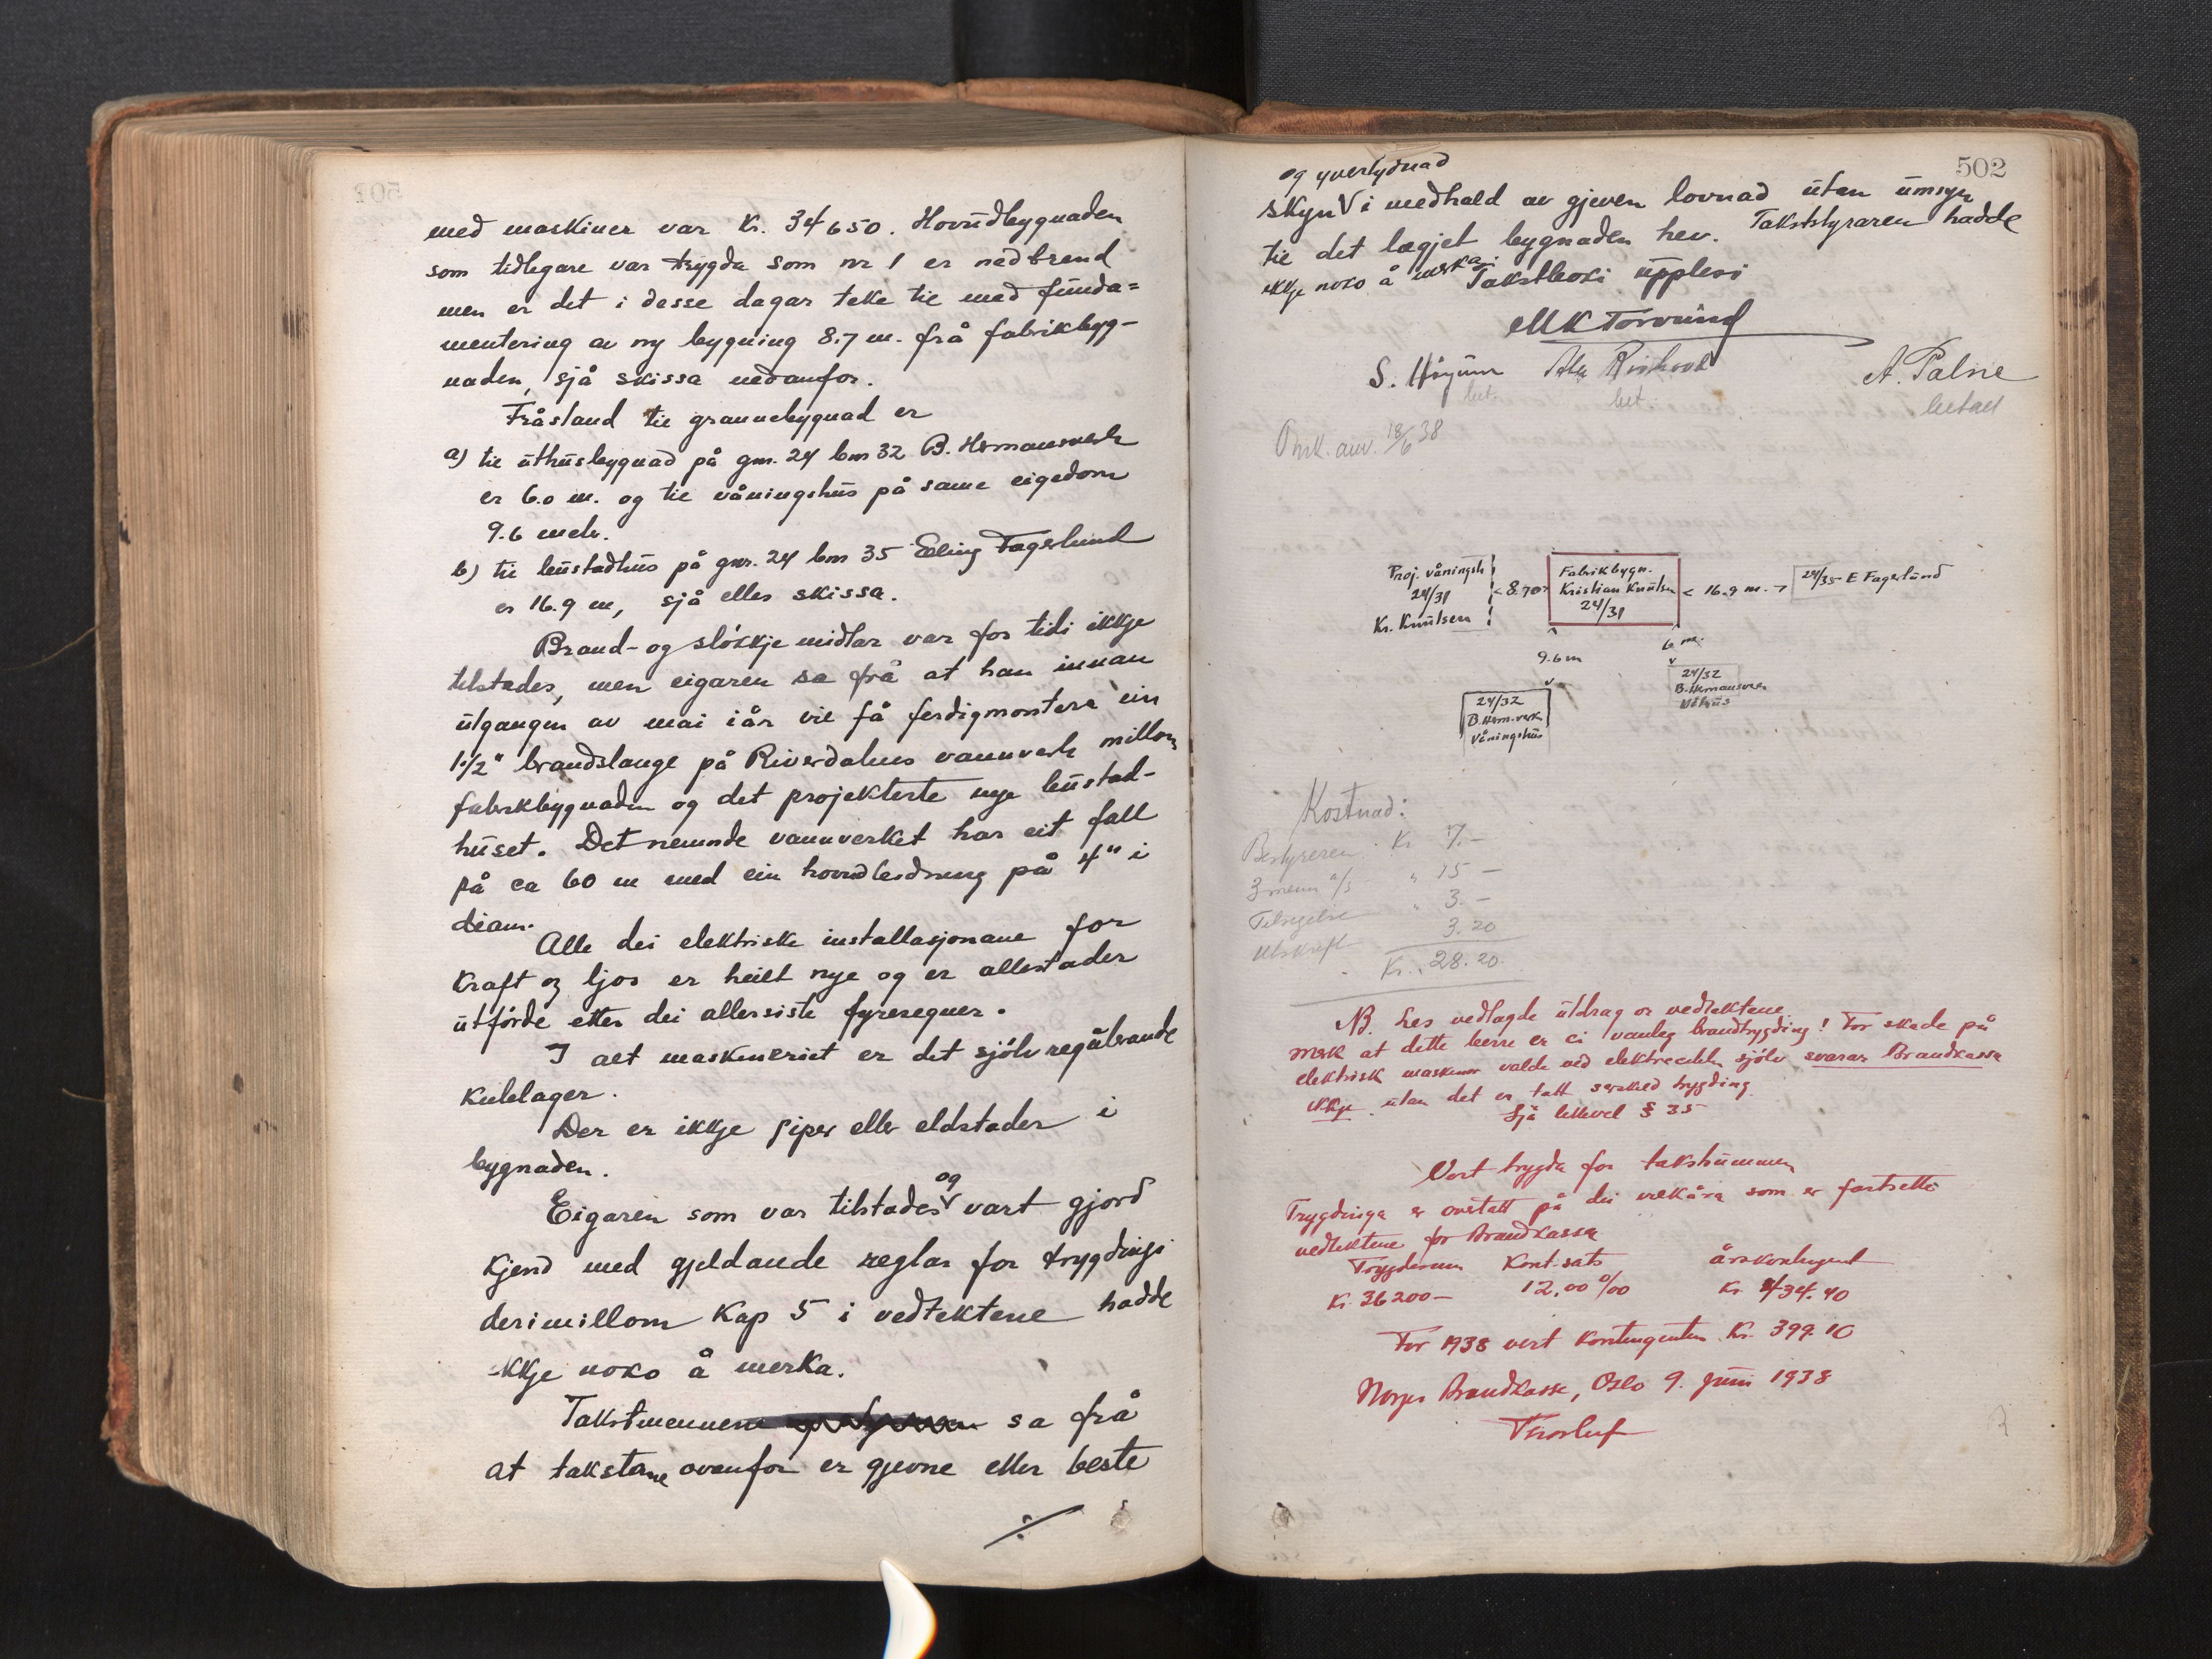 med maskiner var Kr. 34650. Hovudbygnaden
som tidlegare var trygda som nr 1 er nedbrend
men er det i desse dagar teke til med funda=
mentering av ny bygning 8.7 m. frå fabrikbyg-
naden, sjå skissa nedanfor.
Fråstand til grannebygnad er
a) til uthusbygnad på gnr. 24 bnr 32 B. Hermansverk
er 6.0 m. og til våningshus på same eigedom
9.6 meter.
b) til bustadhus på gnr. 24 bnr 35 Erling Fagerlund
er 16.9 m, sjå elles skissa.
Brand- og sløkkje midlar var for tidi ikkje
tilstades, men eigaren sa frå at han innan
utgangen av mai i år vil få ferdigmontera ein
1 1/2" brandslange på Riverdalens vannverk millom
fabrikbygnaden og det projekterte nye bustad-
huset. Det nemnde vannverket har eit fall
på ca 60 m med ein hovudledning på 4" i
diam.
Alle dei elektriske installasjonane for
kraft og ljos er heilt nye og er allestader
utførde etter dei allersiste fyreregner.
I alt maskineriet er det sjølvregulerande
kulelager.
Der er ikkje piper eller eldstader i
bygnaden.
og
Eigaren som var tilstades V vart gjord
kjend med gjeldande reglar for trygdingi
derimillom Kap 5 i vedtektene hadde
ikkje noko å merka.
Takstmennene sa frå
at takstane ovanfor er gjevne etter beste
./.
502
og yvertydnad
skyn V i medhald av gjeven lovnad utan umsyn
til det lægjet bygnaden hev. Takststyraren hadde
ikkje noko å merka. Takstboki upplesi
M K Torvund
S. Høyum A. Palne
bet. bet. betalt
18/6 38
Proj. våningsh
24/31
Kr. Knutsen
< 8.70 >
Fabrikbygn.
Kristian Knutsen
24/31
< 16.9 m. >
24/35 E Fagerlund
9.6 m
6 m.
24/32
B. Herm.verk
Våningshus
24/32
B. Hermansverk
Uthus
Kostnad:
Bestyreren Kr 7.-
3 menn a/5 " 15 -
Tilsigelse " 3.-
Utskrift 3.20
Kr. 28.20.
NB. Les vedlagde utdrag or vedtektene.
Merk at dette berre er ei vanleg brandtrygding! For skade på
elektrisk maskiner valda ved elektrecitten sjølv svarar Brandkassa
ikkje utan det er tatt serskild trygding.
Sjå likevel § 35
Vert trygda for takstsummen
Trygdinga er overtatt på dei vilkåra som er fastsette
vedtektene for Brandkassa
Trygdesum Kont.sats årskontingent
Kr. 36200- 12,00 ‰ Kr. 434.40
For 1938 vert kontingenten Kr. 399.10
Norges Brandkasse, Oslo 9. Juni 1938